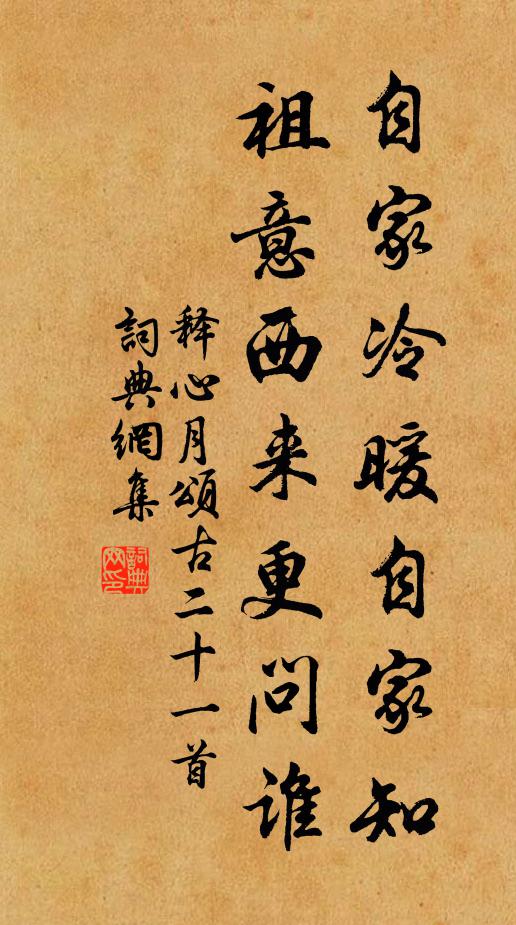 自家冷暖自家知
祖意西来更问谁
释心月颂古二十一首
詞典網集
詞典網印